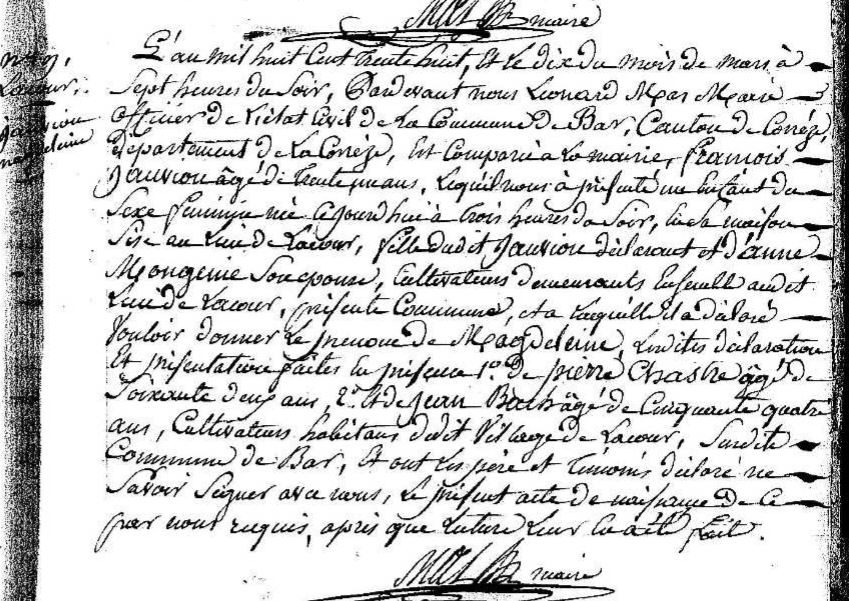 maire
Lacour,
Jauvion
magdeleine
L'an mil huit Cent Trente huit, Et Le dix du mois de mars à
Sept heures du Soir, Pardevant nous Léonard Mas Maire
Officier de L'état Civil de La Commune de Bar, Canton de Corrèze,
département de La Corrèze, Est Comparu à La mairie, françois
Jauvion âgé de Trente ans, Lequel nous à présenté un Enfant du
Sexe féminin née Cejourd'hui à Trois heures du Soir, En Sa maison
Sise au Lieu de Lacour, fille dudit Jauvion déclarant et d'anne
Mongenie Son epouse, Cultivateurs demeurants Ensemble audit
Lieu de Lacour, présente Commune, et a Laquelle il a déclaré
Vouloir donner Le prenom de Magdeleine, Lesdites déclaration
Et présentation faites En présence 1.° de pierre Chastre âgé de
Soixante deux ans, 2.° Et de Jean Bach âgé de Cinquante quatre
ans, Cultivateurs habitans dudit Village de Lacour, Susdite
Commune de Bar, Et ont Les père et Témoins déclaré ne
Savoir Signer avec nous, Le présent acte de naissance de Ce
par nous requis, après que Lecture Leur En a été fait.
maire